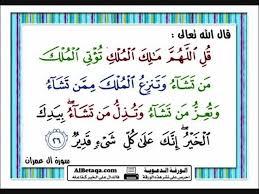 قال الله تعالى :
قُلِ اللَّهُمَّ مَالِكَ الْمُلْكِ تُؤْتِي الْمُلْكَ
مَن تَشَاءُ وَتَنزِعُ الْمُلْكَ مِمَّن تَشَاءُ
وَتُعِزُّ مَن تَشَاءُ وَتُذِلُّ مَن تَشَاءُ ۖ بِيَدِكَ
الْخَيْرُ ۖ إِنَّكَ عَلَىٰ كُلِّ شَيْءٍ قَدِيرٌ ٢٦
سورة آل عمران
البطاقة الدعوية
AlBetaqa.com